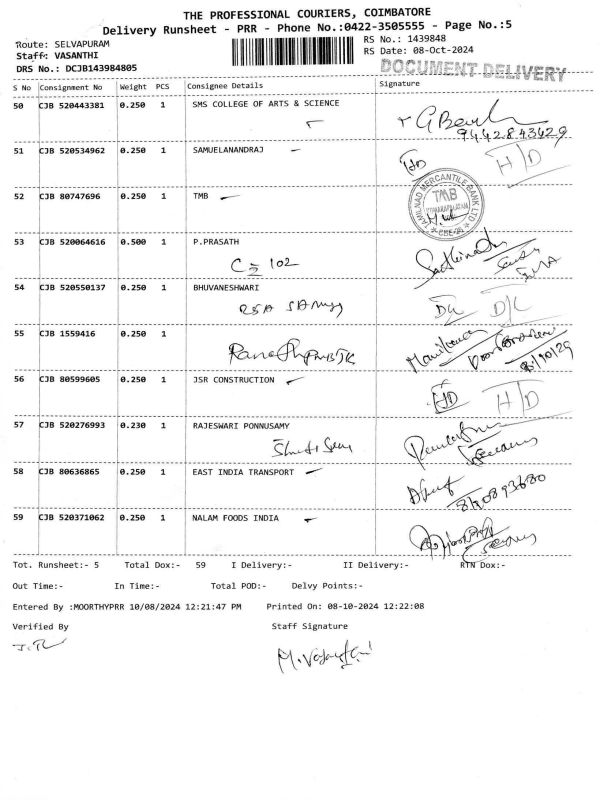 THE PROFESSIONAL COURIERS, COIMBATORE
Delivery Runsheet - PRR - Phone No.:0422-3505555 - Page No.:5
Route: SELVAPURAM
RS No.: 1439848
Staff: VASANTHI
RS Date: 08-Oct-2024
DRS No.: DCJB143984805
DOCUMENT DELIVERY
S No Consignment No Weight PCS Consignee Details Signature
50 CJB 520443381 0.250 1 SMS COLLEGE OF ARTS & SCIENCE
9442843429
51 CJB 520534962 0.250 1 SAMUELANANDRAJ
H/D H/D
52 CJB 80747696 0.250 1 TMB
TAMILNAD MERCANTILE BANK LTD
TMB
CBE-26
53 CJB 520064616 0.500 1 P.PRASATH
C 102
54 CJB 520550137 0.250 1 BHUVANESHWARI
D/L D/L
55 CJB 1559416 0.250 1
56 CJB 80599605 0.250 1 JSR CONSTRUCTION
H/D H/D
57 CJB 520276993 0.230 1 RAJESWARI PONNUSAMY
58 CJB 80636865 0.250 1 EAST INDIA TRANSPORT
59 CJB 520371062 0.250 1 NALAM FOODS INDIA
Tot. Runsheet:- 5 Total Dox:- 59 I Delivery:- II Delivery:- RTN Dox:-
Out Time:- In Time:- Total POD:- Delvy Points:-
Entered By :MOORTHYPRR 10/08/2024 12:21:47 PM Printed On: 08-10-2024 12:22:08
Verified By Staff Signature
M.Vasanthi